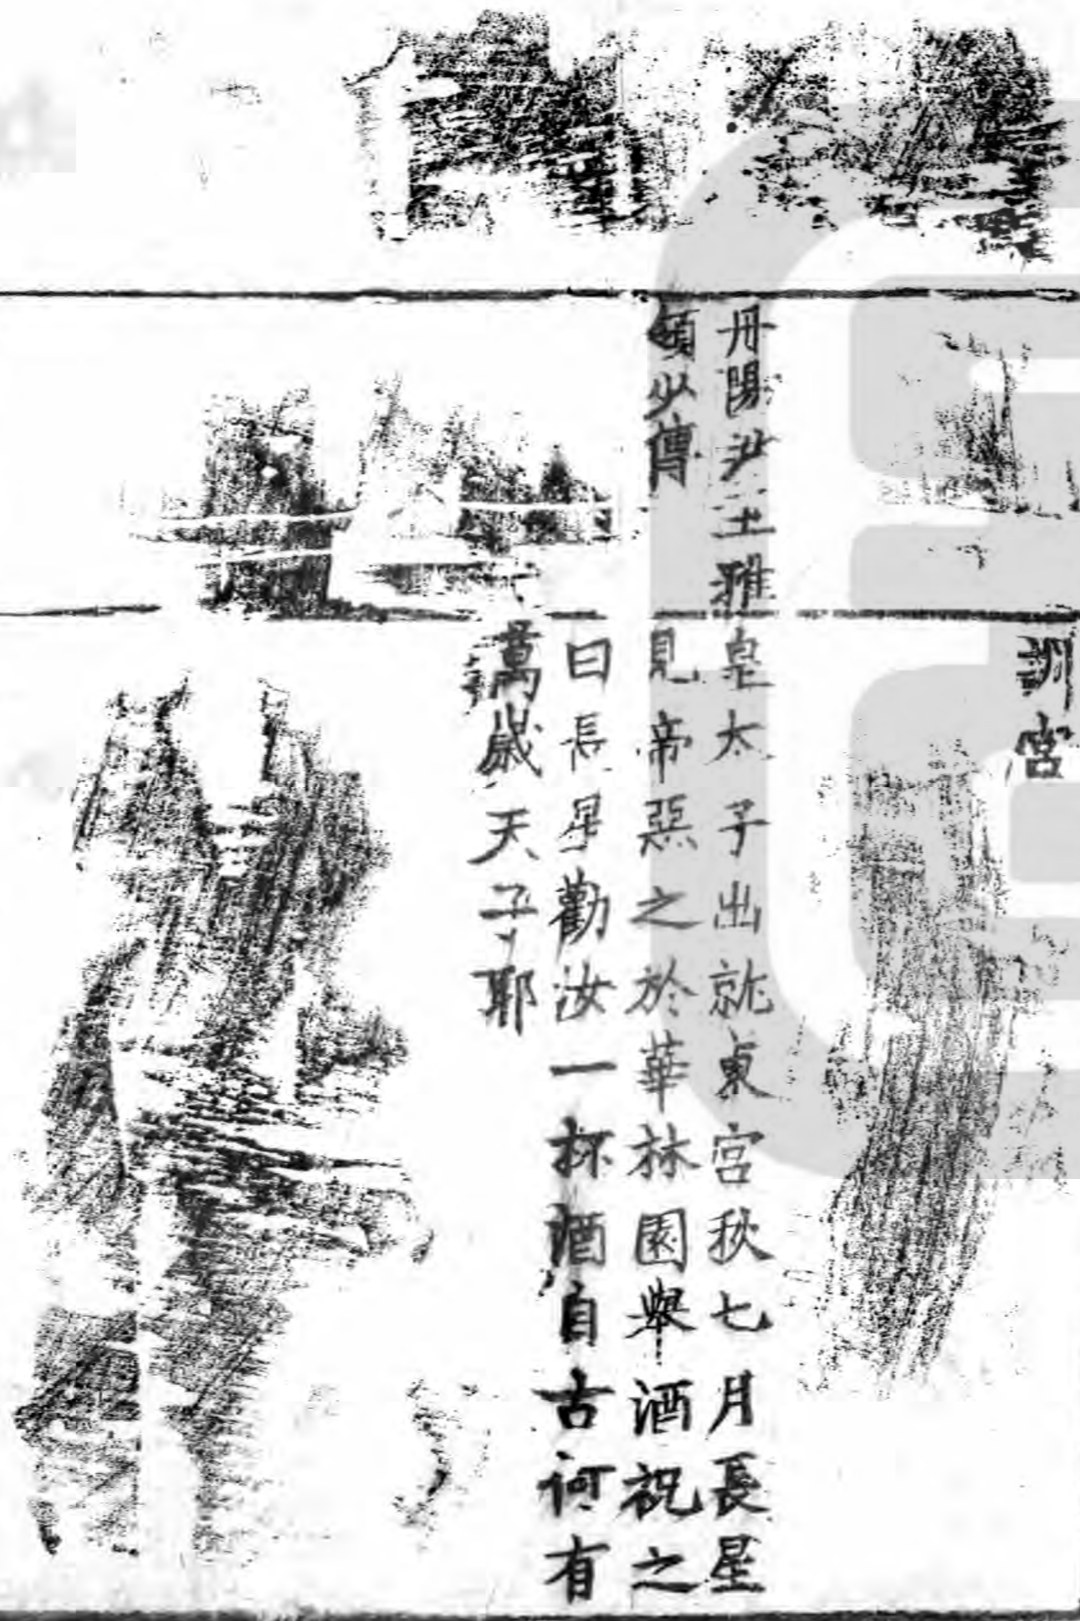 訓宮
丹陽尹王雅
領少傅
皇太子出就東宮秋七月長星
見帝惡之於華林園舉酒祝之
曰長星勸汝一杯酒自古何有
萬歲天子耶